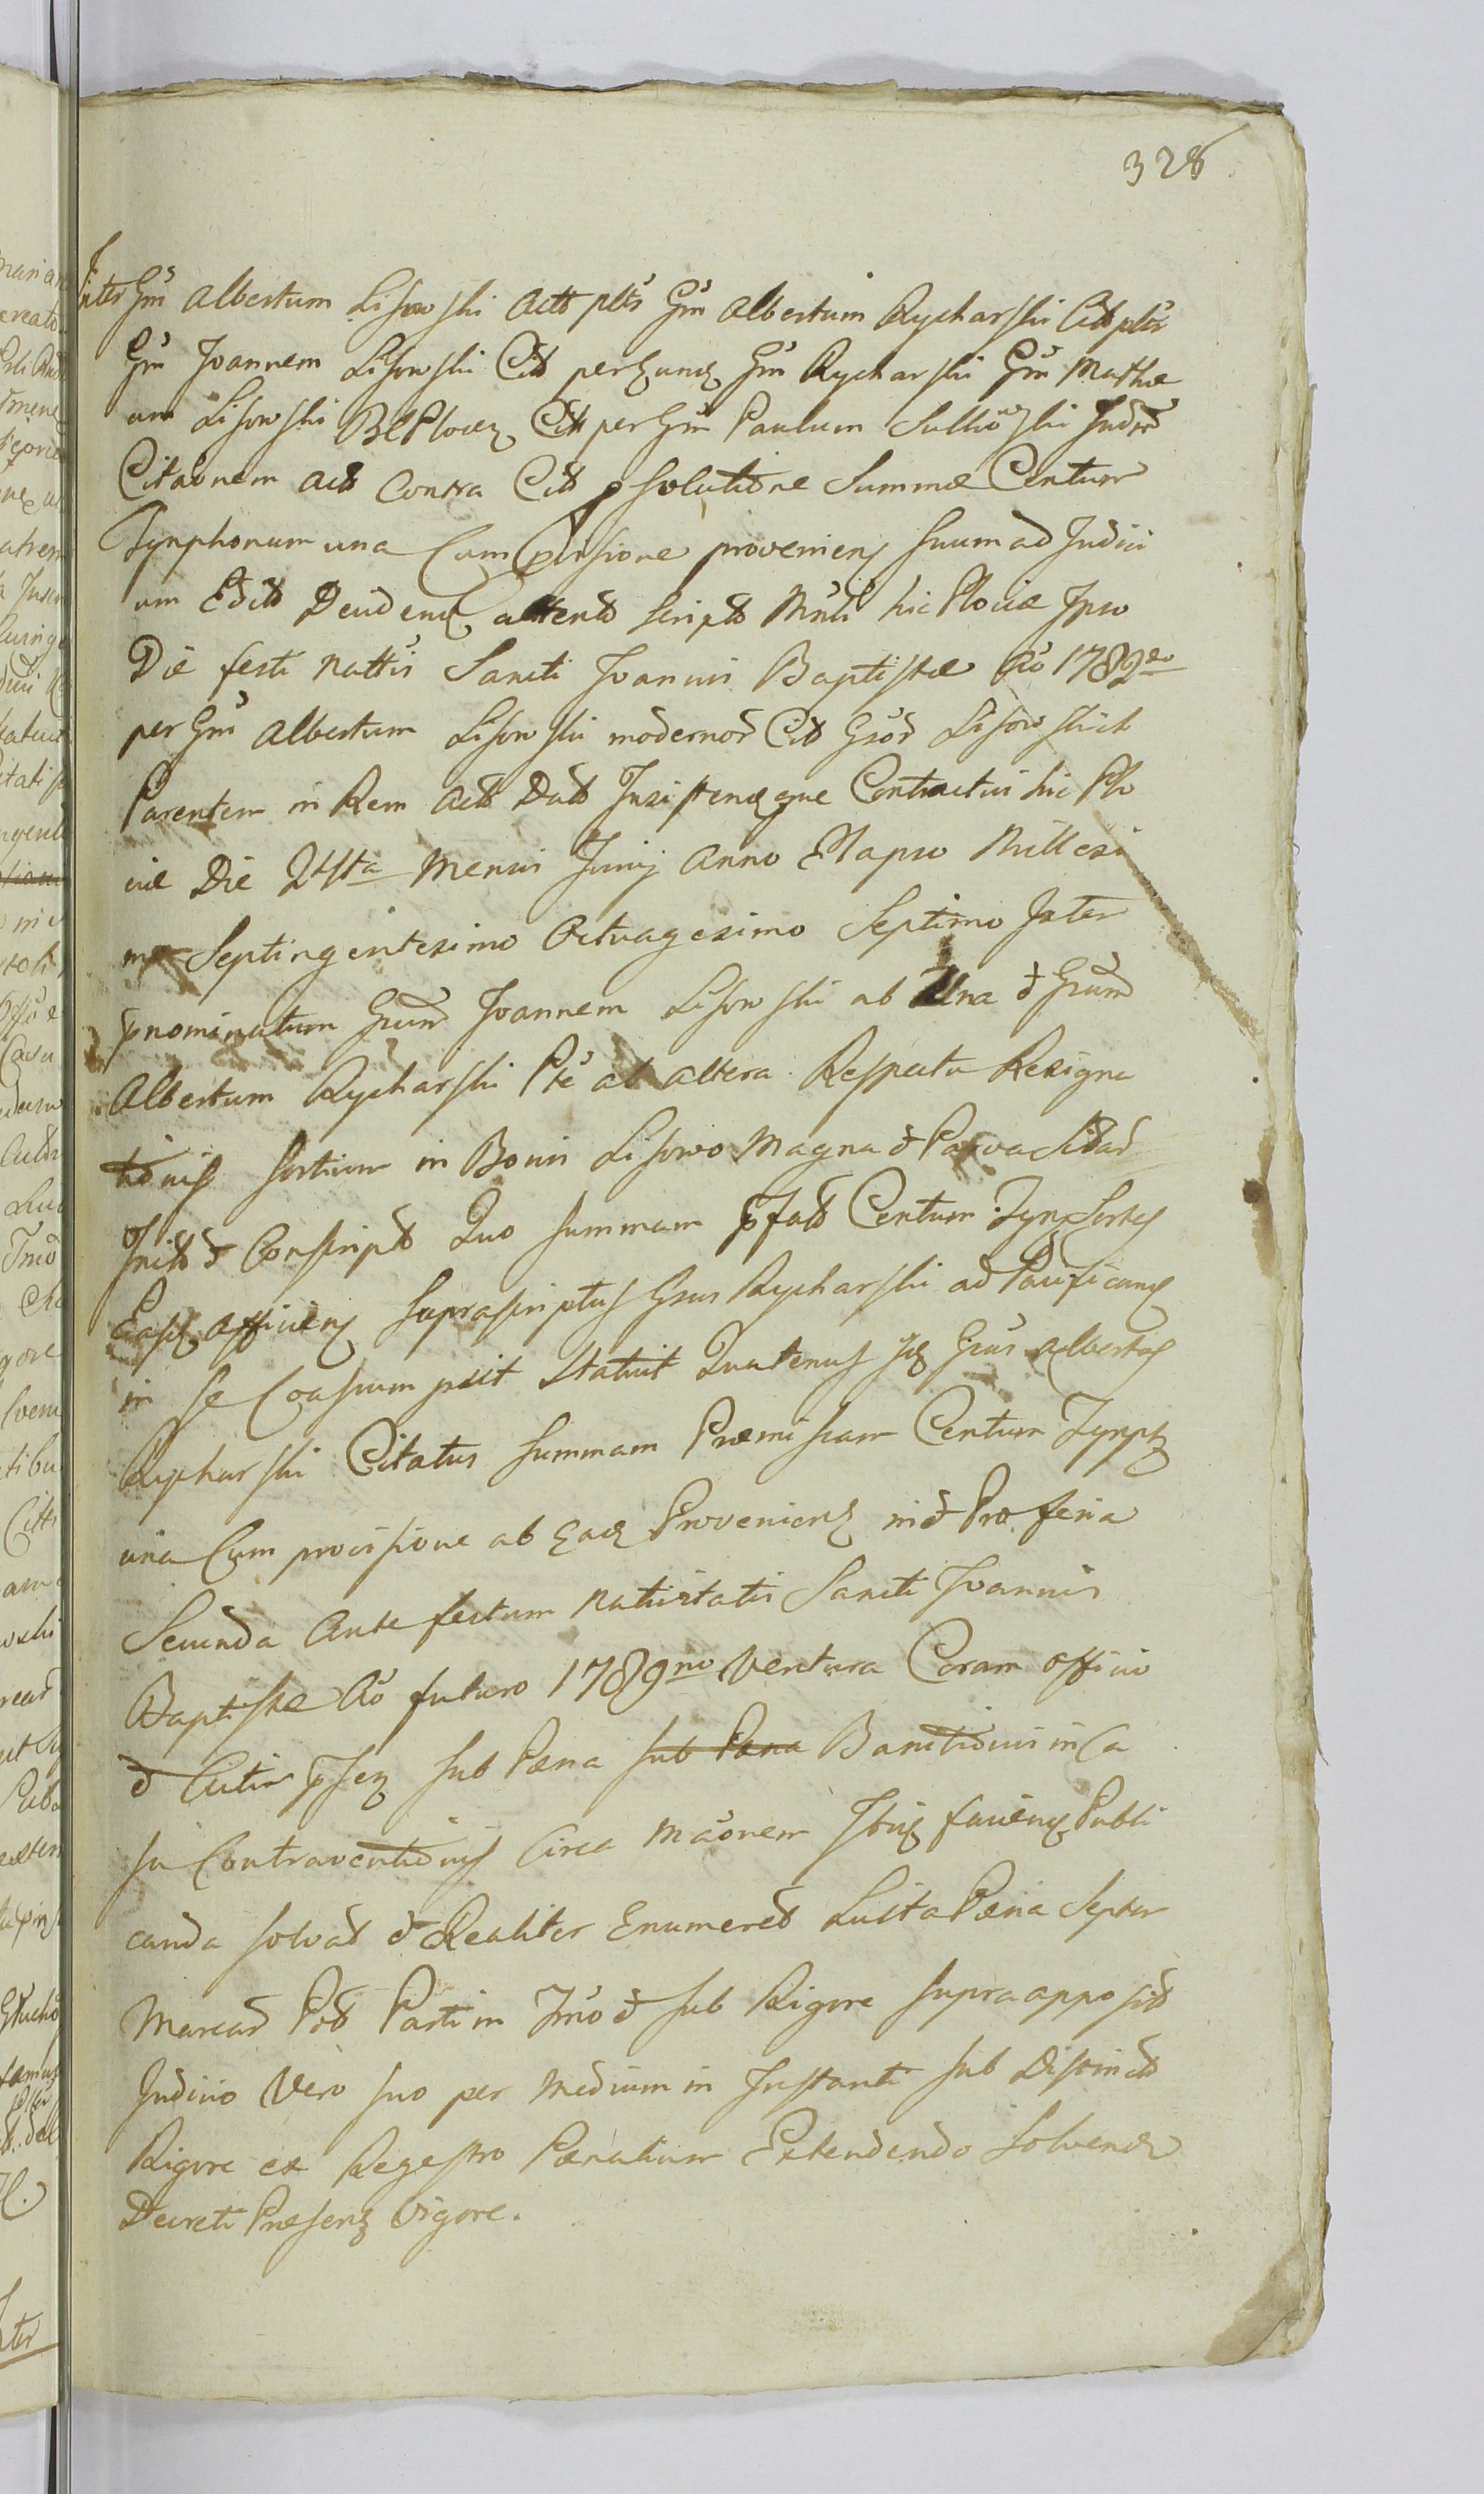 328
Inter Gm̃ Albertum Lisowski Actt pltẽ Gm̃ Albertum Rycharski Citt pltẽ
Gm̃ Joannem Lisowski Citt per Gm̃ Rycharski Gm̃ Mathæ
um Lisowski Citt per Gm̃ Paulum
Citaõnem act Contra Citt p solutione Summæ Centum
Tynphonum una Cum provenien suum ad Judici
um Edit Deciden attento script hic Plociæ Ipso
Die festi nattis Sancti Joannis Baptistæ Aõ 1782do
per Gm̃ Albertum Lisowski modernor Citt Gsor Lisowskich
Parentem in Rem Act Dato Insistendque Contractui hic Plo
ciæ Die 21sta Mensis Junij Anno Elapso Millesi
mo Septingentesimo Octuagesimo Septimo Inter
pnominatum Gsum Joannem Lisowski ab Una & Gsum
Albertum Rycharski Pte ab altera Respectu Resigna
tionis sortium in Bonis Lisowo Magna & Parva
Inito & Conscript Quo summam pfat Centum Tynf Sortes
Easd afficien suprascriptus Gsus Rycharski ad Pacificand
in se Coassumpsit Statuit Quatenus Id Gsus Albertus
Rycharski Citatus summam Præmissam Centum Tynph
una Cum provisione ab Ead Provenien in & Pro feria
Secunda Ante festum nativitatis Sancti Joannis
Baptistæ Aõ futuro 1789no Ventura Coram officio
& Actis psen sub Pæna sub Pæna Bannitionis in Ca
su Contraventionis Circa Maõnem Ibid faciend Publi
canda solvat & Realiter Enumeret Luita Pæna Septem
Marcar Parti in Imo & sub Rigore supra apposit
Judicio Vero suo per Medium in Instanti sub Distincto
Rigore ex Regestro Pænalium Extendendo Solvend
Decreti Præsen Vigore.